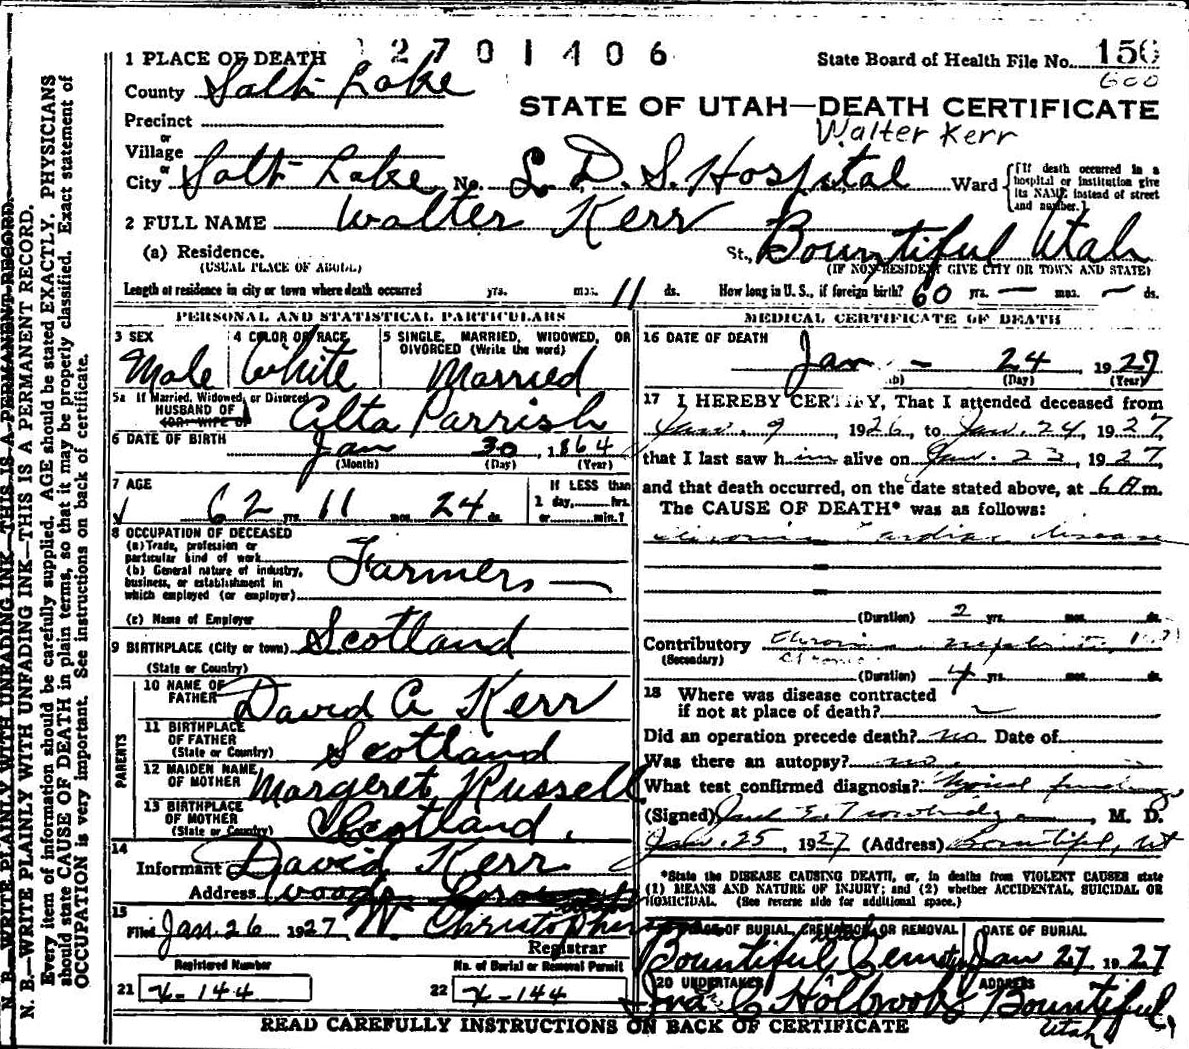 2701406
State Board of Health File No. 156
600
1 PLACE OF DEATH
County Salt Lake
STATE OF UTAH—DEATH CERTIFICATE
Precinct
Walter Kerr
or
Village
or
City Salt Lake No. L. D. S. Hospital Ward
(If death occurred in a hospital or institution give its NAME instead of street and number.)
2 FULL NAME Walter Kerr
(a) Residence. St., Bountiful Utah
(USUAL PLACE OF ABODE) (IF NON-RESIDENT GIVE CITY OR TOWN AND STATE)
Length of residence in city or town where death occurred yrs. mos. 11 ds. How long in U. S., if foreign birth? 60 yrs. — mos. — ds.
PERSONAL AND STATISTICAL PARTICULARS
3 SEX
Male
4 COLOR OR RACE
White
5 SINGLE, MARRIED, WIDOWED, OR DIVORCED (Write the word)
Married
5a If Married, Widowed, or Divorced
HUSBAND OF Alta Parrish
(OR) WIFE OF
6 DATE OF BIRTH Jan 30, 1864
(Month) (Day) (Year)
7 AGE
62 yrs. 11 mos. 24 ds.
If LESS than
1 day, hrs.
or min.?
8 OCCUPATION OF DECEASED
(a) Trade, profession or
particular kind of work
Farmer
(b) General nature of industry,
business, or establishment in
which employed (or employer)
(c) Name of Employer
9 BIRTHPLACE (City or town) Scotland
(State or Country)
PARENTS
10 NAME OF FATHER David A Kerr
11 BIRTHPLACE OF FATHER
(State or Country) Scotland
12 MAIDEN NAME OF MOTHER Margeret Russell
13 BIRTHPLACE OF MOTHER
(State or Country) Scotland.
14
Informant David Kerr
Address Woods
15
Filed Jan. 26 1927
Registrar
Registered Number
21 X-144
No. of Burial or Removal Permit
22 X-144
MEDICAL CERTIFICATE OF DEATH
16 DATE OF DEATH
Jan - 24 1927
(Day) (Year)
17 I HEREBY CERTIFY, That I attended deceased from
Jan. 9, 1926, to Jan. 24, 1927
that I last saw him alive on Jan. 23, 1927
and that death occurred, on the date stated above, at 6 A m.
The CAUSE OF DEATH* was as follows:
Chronic Cardiac disease
(Duration) 2 yrs. mos. ds.
Contributory Chronic nephritis
(Secondary) Chronic
(Duration) 4 yrs. mos. ds.
18 Where was disease contracted
if not at place of death?
Did an operation precede death? no Date of
Was there an autopsy? no
What test confirmed diagnosis?
(Signed) M. D.
Jan. 25, 1927 (Address) Bountiful, Ut
*State the DISEASE CAUSING DEATH, or, in deaths from VIOLENT CAUSES state
(1) MEANS AND NATURE OF INJURY; and (2) whether ACCIDENTAL, SUICIDAL OR
HOMICIDAL. (See reverse side for additional space.)
OF BURIAL, CREMATION, OR REMOVAL
Bountiful
DATE OF BURIAL
Jan 27, 1927
20 UNDERTAKER
C Holbrook
ADDRESS
Bountiful,
Utah
READ CAREFULLY INSTRUCTIONS ON BACK OF CERTIFICATE
N. B.—WRITE PLAINLY WITH UNFADING INK—THIS IS A PERMANENT RECORD.
N. B.—WRITE PLAINLY WITH UNFADING INK—THIS IS A PERMANENT RECORD.
Every item of information should be carefully supplied. AGE should be stated EXACTLY. PHYSICIANS
should state CAUSE OF DEATH in plain terms, so that it may be properly classified. Exact statement of
OCCUPATION is very important. See instructions on back of certificate.